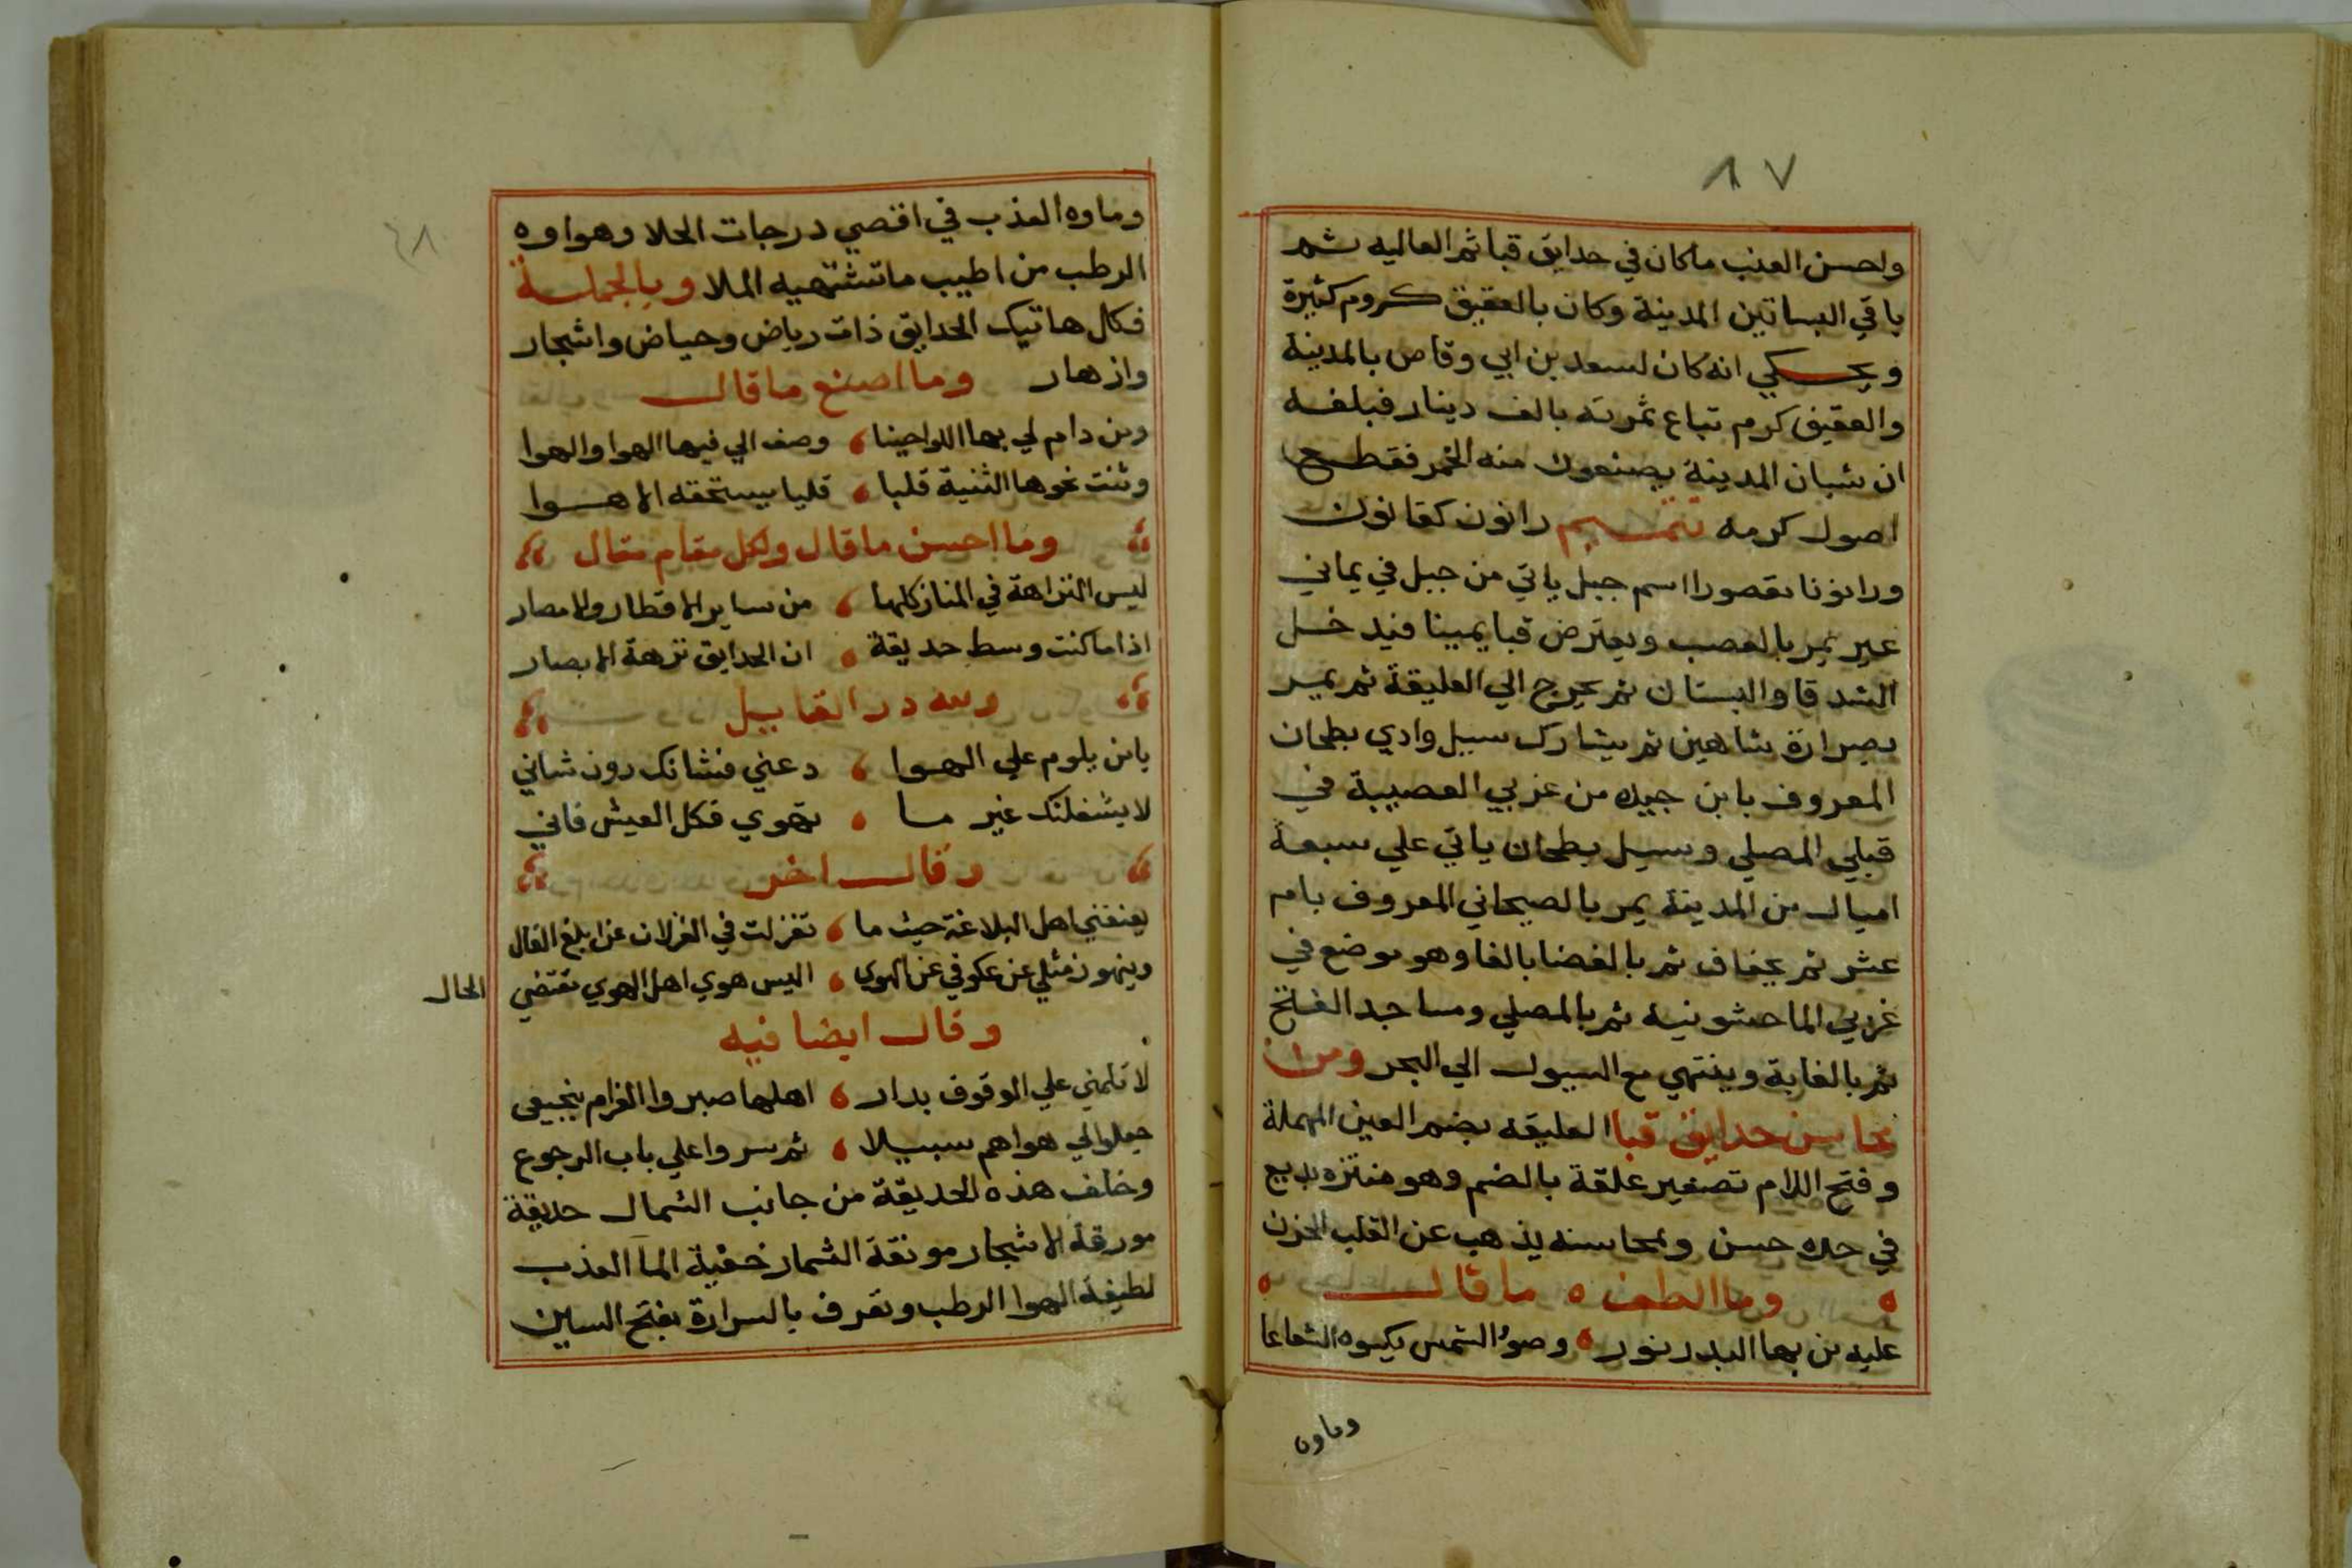 ٨٧
واحسن العنب ماكان في حدايق قبا ثم العاليه ثم
باقي البساتين المدينة وكان بالعقيق كروم كثيرة
ويحكي انه كان لسعد بن ابي وقاص بالمدينة
والعقيق كرم تباع ثمرته بالف دينار فبلغه
ان شبان المدينة يصنعون منه الخمر فقطع
اصول كرمه تتميم رانون كقانون
ورانونا مقصورا اسم جبل ياتي من جبل في يماني
عير يمر بالعصب ويعترض قبا يمينا فيدخل
الشدقا والبستان ثم يخرج الي العليقة ثم يمير
بصرارة شاهين ثم يشارك سبيل وادي بطحان
المعروف بابن جبيده من غربي العصيبة في
قبلي المصلي وسيل بطحان ياتي علي سبعة
اميال من المدينة يمر بالصيحاني المعروف بام
عشر ثم بجفاف ثم بالفضا بالفا وهو موضع في
غربي الماحشونيه ثم بالمصلي ومساجد الفتح
ثم بالغابة وينتهي مع السيول الي البحر ومن
محاسن حدايق قبا العليقه بضم العين المهملة
وفتح اللام تصغير علقة بالضم وهو منتزه بديع
في حده حسن وبمحاسنه يذهب عن القلب الحزن
وما الطف ما قال
عليه من بها البدر نور وضوء الشمس يكسوه الشعاعا
وماوه
وماوه العذب في اقصي درجات الحلا وهواوه
الرطب من اطيب ما تشتهيه الملا وبالجملة
فكل هاتيك الحدايق ذات رياض وحياض واشجار
وازهار وما اصنع ما قال
ومن دام لي بها اللواحينا وصف الي فيها الهوا والهوا
وثنت نحوها الثنية قلبا قليا يستحقه الاهوا
وما احسن ما قال ولكل مقام مقال
ليس النزاهة في المناز كلها من ساير الاقطار والامصار
اذا ما كنت وسط حديقة ان الحدايق نزهة الابصار
ولله در القاييل
يا من يلوم علي الهوا دعني فشانك دون شاني
لا يشغلنك غير ما تهوي فكل العيش فاني
وقال اخر
يعنفني اهل البلاغة حيث ما تغزلت في الغزلان عن ابلغ القال
وينهون مثلي عن عكوفي عن الهوي اليس هوي اهل الهوي مقتضي الحال
وقال ايضا فيه
لا تلمني علي الوقوف بدار اهلها صبروا الغرام ضجيعي
جعلوا لي هواهم سبيلا ثم سروا علي باب الرجوع
وخلف هذه الحديقة من جانب الشمال حديقة
مورقة الاشجار مونقة الثمار خفية الما العذب
لطيفة الهوا الرطب وتعرف بالسرارة بفتح السين